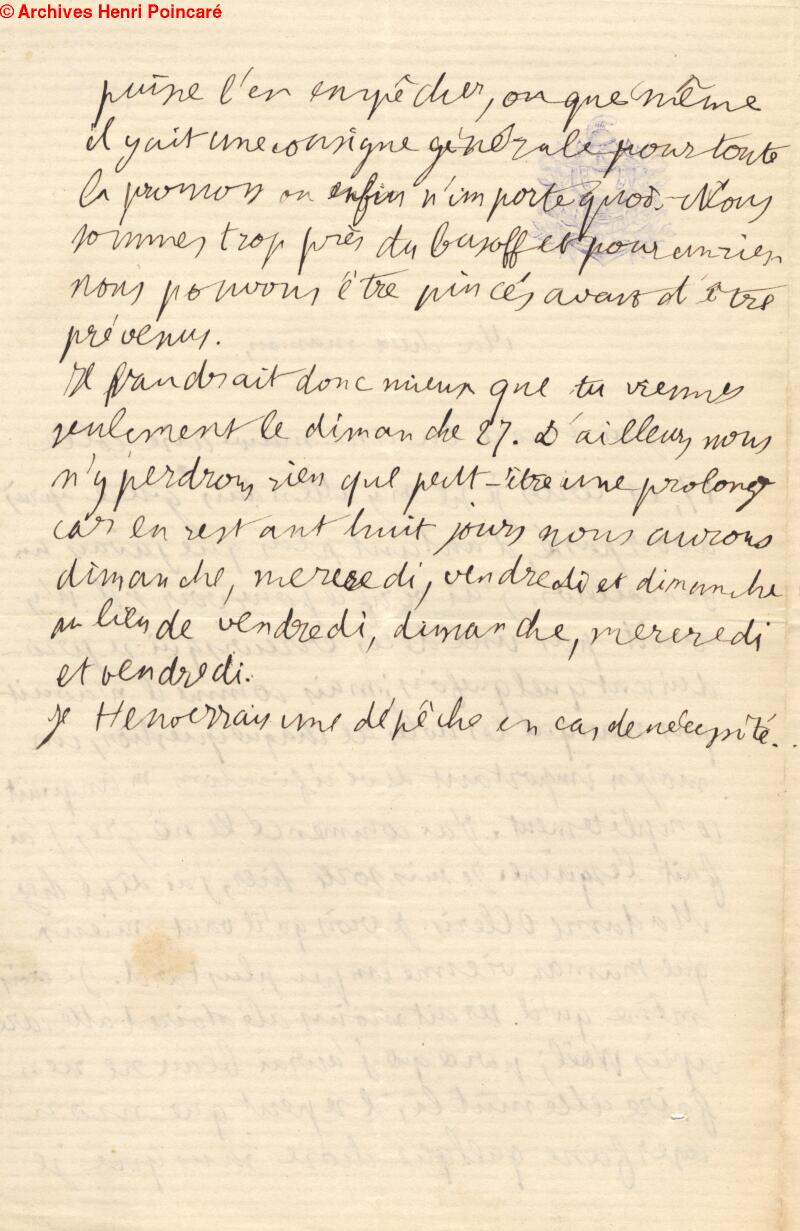 © Archives Henri Poincaré
puisse l'en empêcher, ou que même
il y ait une consigne générale pour toute
la promoss ou enfin n'importe quoi. Nous
sommes trop près du busoff et pour un rien
nous pouvons être pincés avant d'être
prévenus.
Il faudrait donc mieux que tu viennes
seulement le dimanche 27. D'ailleurs nous
n'y perdrons rien que peut-être une prolonge
car en restant huit jours nous aurons
dimanche, mercredi, vendredi et dimanche
au lieu de vendredi, dimanche, mercredi
et vendredi.
Je t'enverrais une dépêche en cas de nécessité.